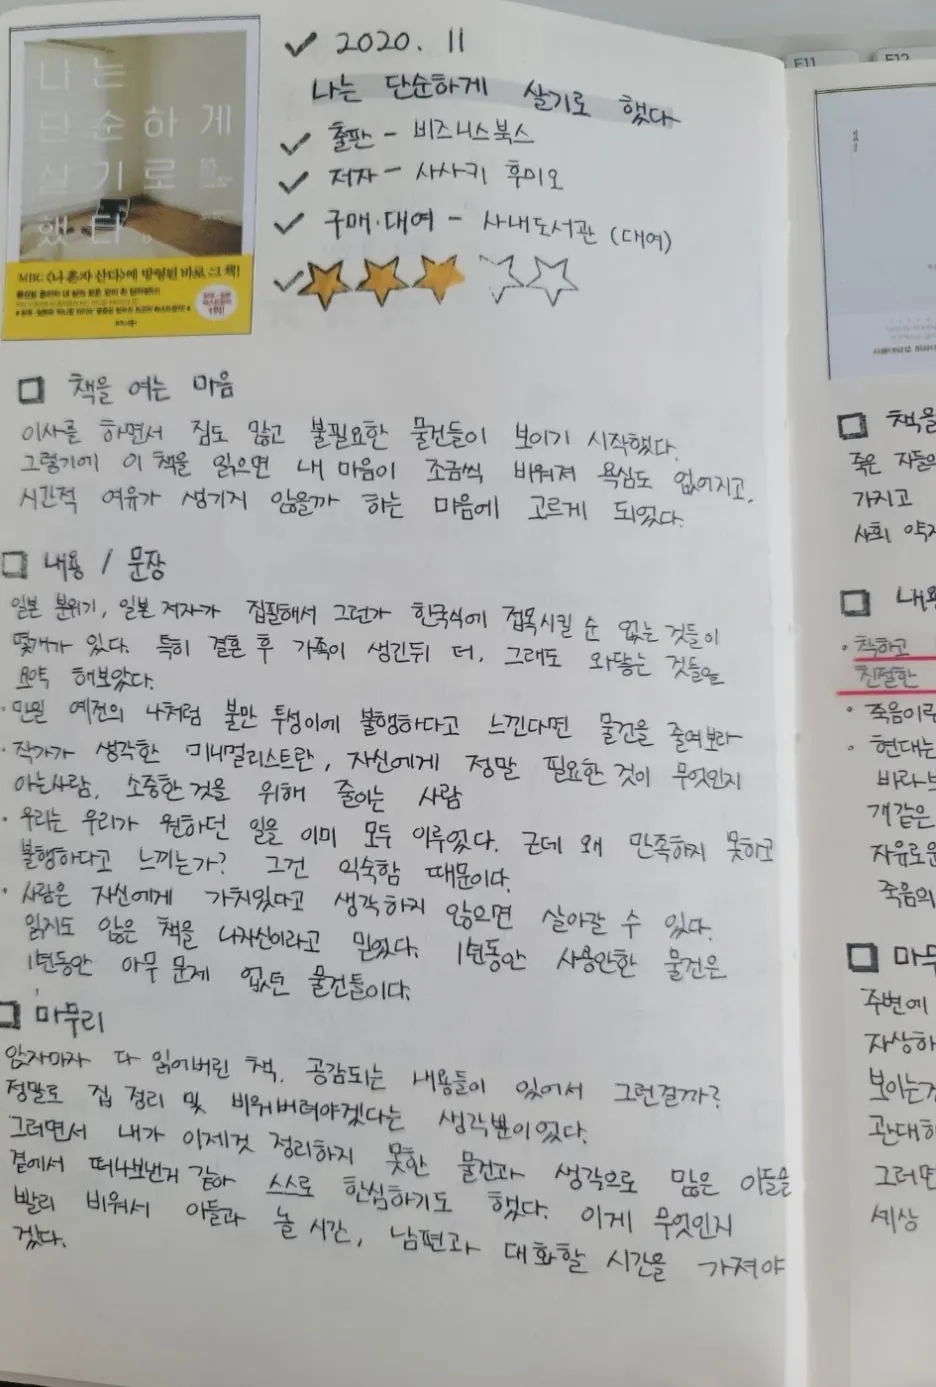 나는
단순하게
살기로
했다。
MBC 《나 혼자 산다》에 방영된 바로 그 책!
1위!
✓ 2020. 11
나는 단순하게 살기로 했다
✓ 출판 - 비즈니스북스
✓ 저자 - 사사키 후미오
✓ 구매·대여 - 사내도서관 (대여)
✓
□ 책을 여는 마음
이사를 하면서 짐도 많고 불필요한 물건들이 보이기 시작했다.
그렇기에 이 책을 읽으면 내 마음이 조금씩 비워져 욕심도 없어지고,
시간적 여유가 생기지 않을까 하는 마음에 고르게 되었다.
□ 내용 / 문장
일본 분위기, 일본 저자가 집필해서 그런가 한국식에 접목시킬 순 없는 것들이
몇개가 있다. 특히 결혼 후 가족이 생긴뒤 더, 그래도 와닿는 것들을
요약 해보았다.
· 만일 예전의 나처럼 불만 투성이에 불행하다고 느낀다면 물건을 줄여보라
· 작가가 생각한 미니멀리스트란, 자신에게 정말 필요한 것이 무엇인지
아는사람, 소중한 것을 위해 줄이는 사람
· 우리는 우리가 원하던 일을 이미 모두 이루었다. 근데 왜 만족하지 못하고
불행하다고 느끼는가? 그건 익숙함 때문이다.
· 사람은 자신에게 가치있다고 생각하지 않으면 살아갈 수 있다.
읽지도 않은 책을 나자신이라고 믿었다. 1년동안 사용안한 물건은
1년동안 아무 문제 없던 물건들이다.
□ 마무리
앉자마자 다 읽어버린 책. 공감되는 내용들이 있어서 그런걸까?
정말로 집 정리 및 비워버려야겠다는 생각뿐이었다.
그러면서 내가 이제껏 정리하지 못한 물건과 생각으로 많은 이들을
곁에서 떠나보낸거 같아 스스로 한심하기도 했다. 이게 무엇인지
빨리 비워서 아들과 놀 시간, 남편과 대화할 시간을 가져야
겠다.
F11
F12
□ 책을
죽은 자들의
가지고
사회 약자
□ 내용
· 착하고
친절한
· 죽음이란
· 현대는
바라보
개같은
자유로운
죽음의
□ 마무
주변에
자상하
보이는
관대하
그러면
세상